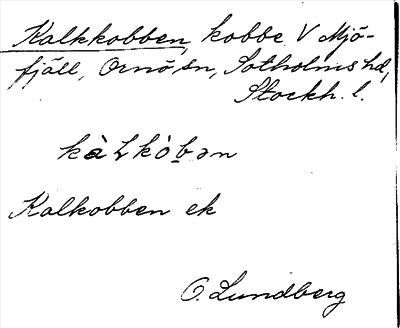 Kalkkobben, kobbe V Mjö-
fjäll, Ornö sn, Sotholms hd,
Stockh. l.
kàlkòbən
Kalkobben ek
O. Lundberg